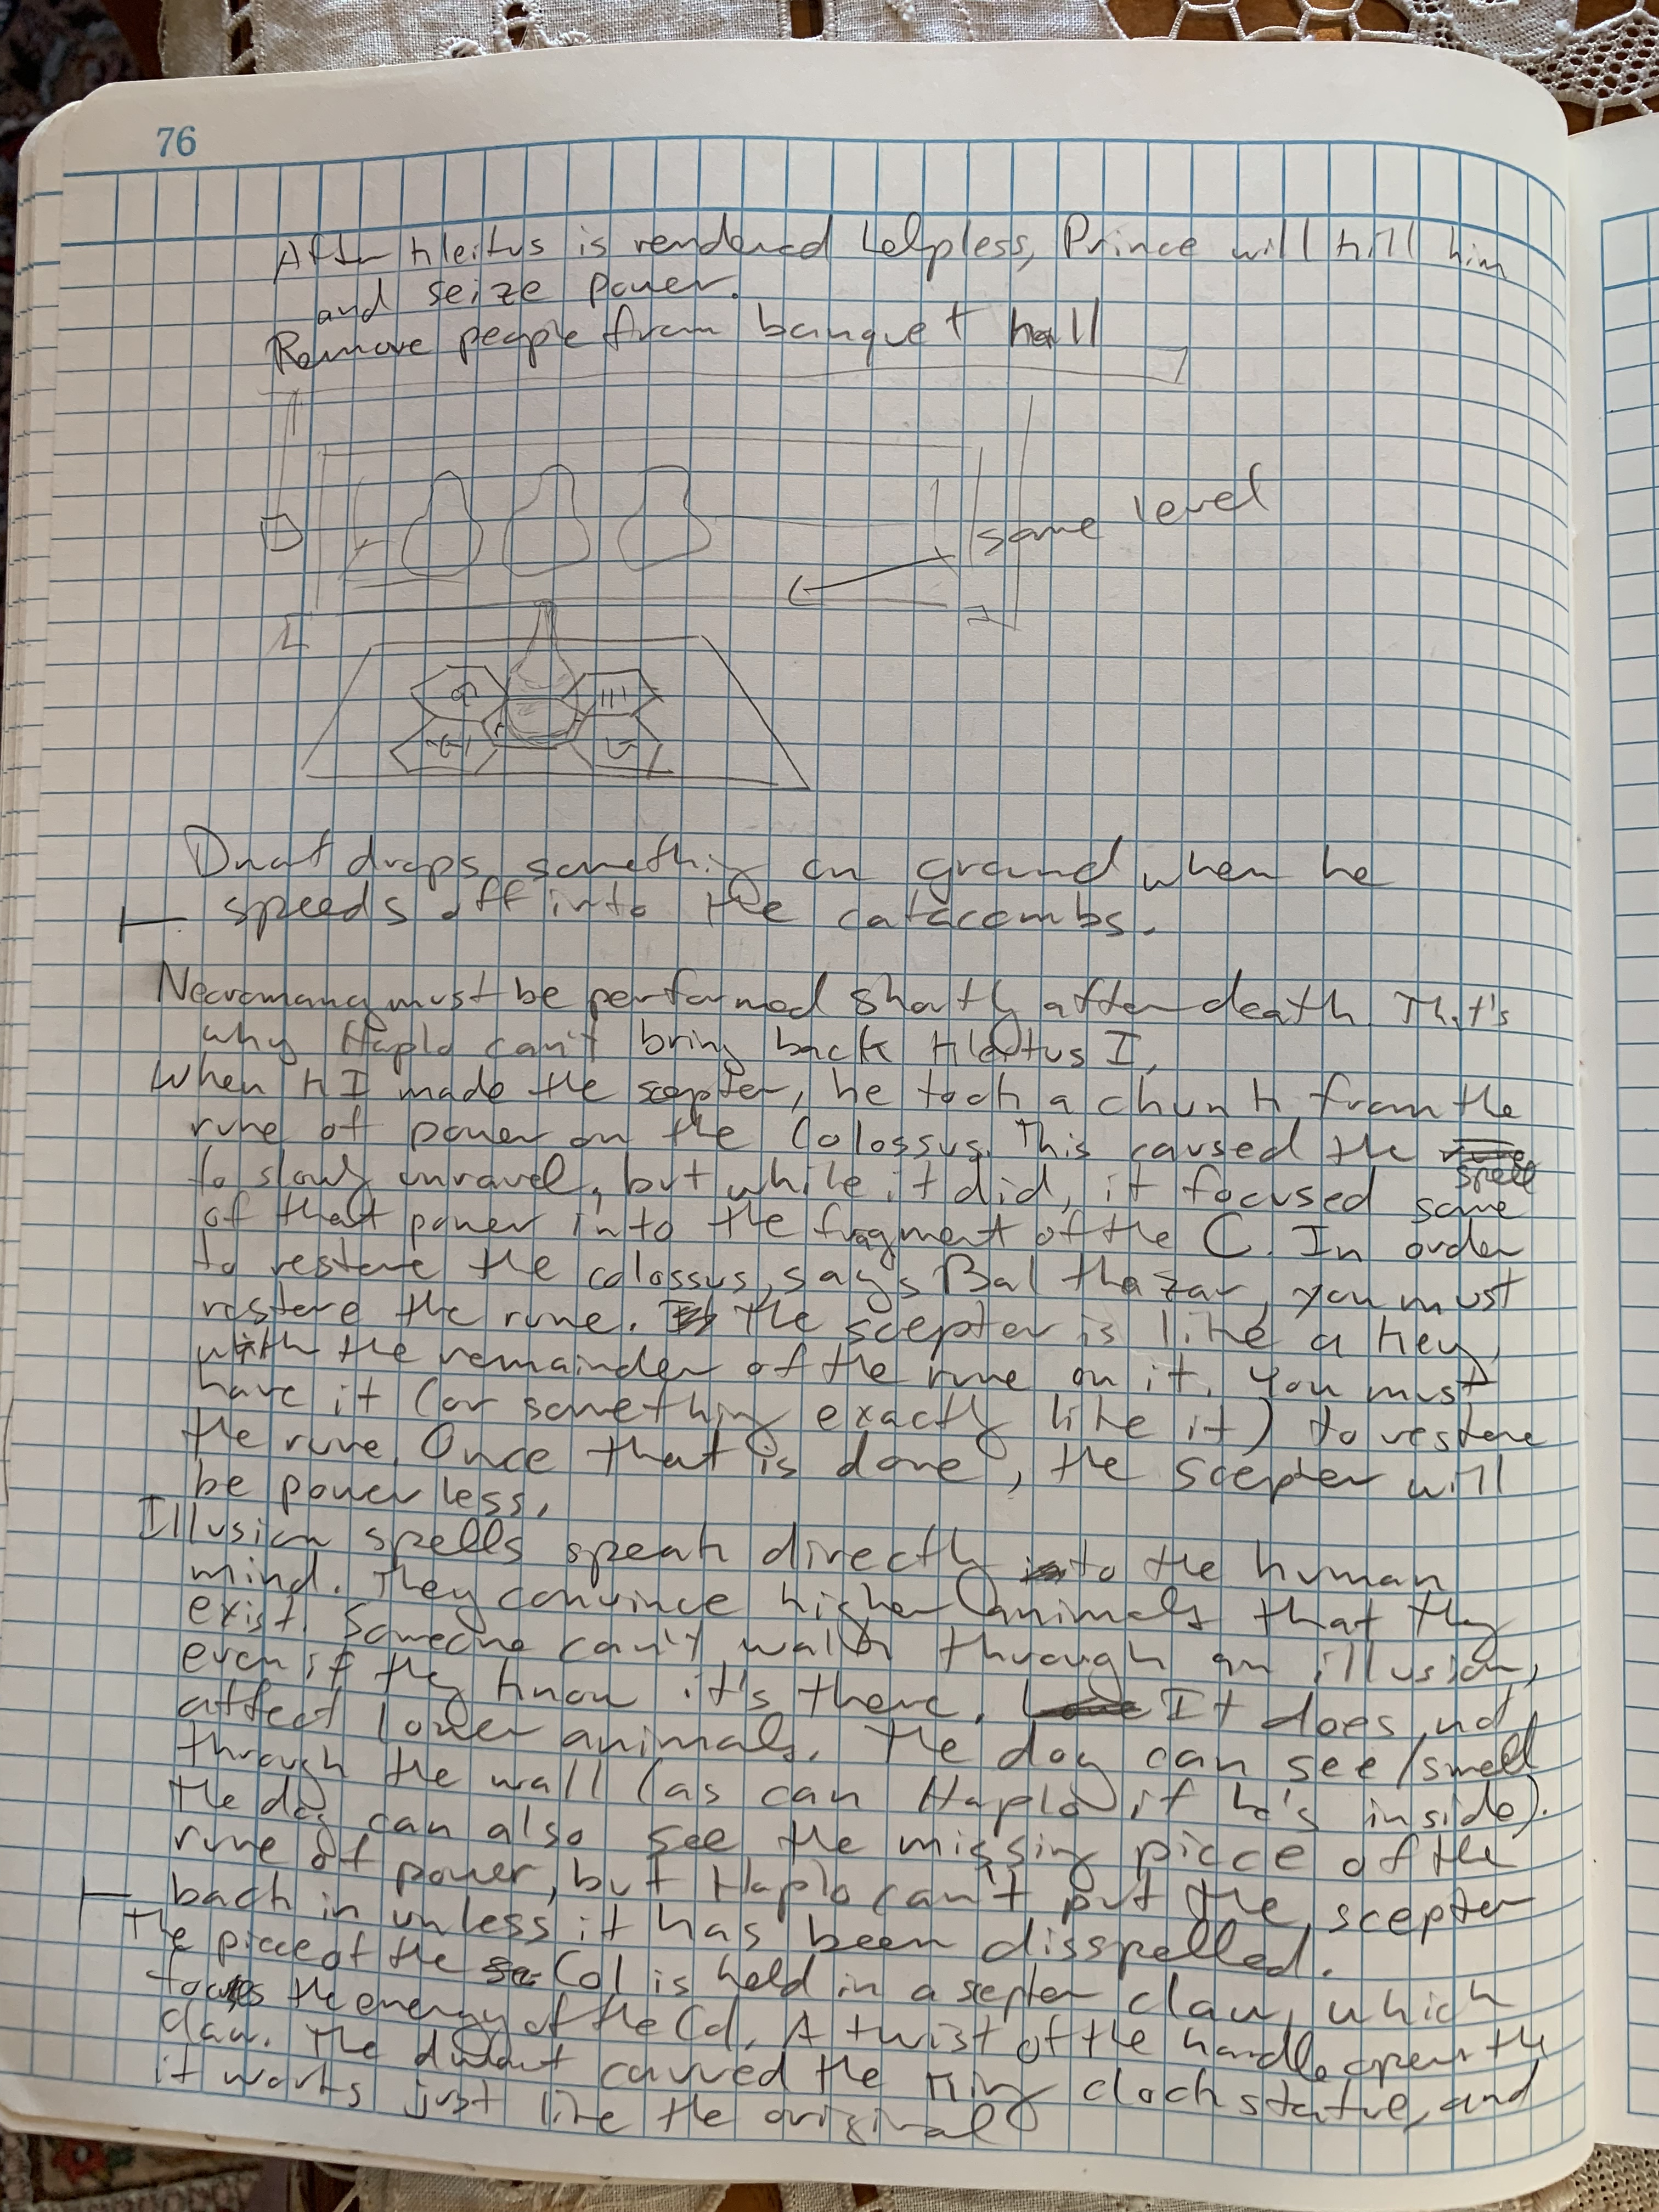 76
After Kleitus is rendered helpless, Prince will kill him
and seize power.
Remove people from banquet hall
same level
drops something on ground when he
speeds off into the catacombs.
Necromancy must be performed shortly after death. That's
why Haplo can't bring back Kleitus I.
When KI made the scepter, he took a chunk from the
rune of power on the Colossus. This caused the
spell
to slowly unravel, but while it did, it focused some
of that power into the fragment of the C. In order
to restore the colossus, says Balthazar, you must
restore the rune. The scepter is like a key,
with the remainder of the rune on it. You must
have it (or something exactly like it) to restore
the rune. Once that is done, the scepter will
be powerless.
Illusion spells speak directly to the human
mind. They convince higher animals that they
exist. Someone can't walk through an illusion,
even if they know it's there. It does not
affect lower animals. The dog can see/smell
through the wall (as can Haplo if he's inside).
The dog can also see the missing piece of the
rune of power, but Haplo can't put the scepter
back in unless it has been disspelled.
The piece of the Col is held in a septer claw, which
the energy of the Col. A twist of the handle opens the
claw. The carved the King clock statue, and
it works just like the original